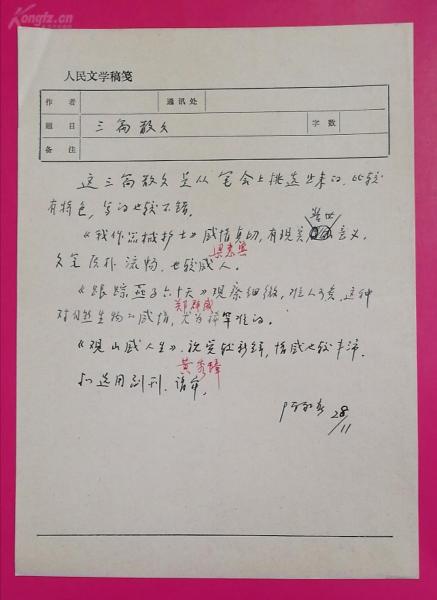 Kongfz.cn
人民文学稿笺
作者
通讯处
题目
三篇散文
字数
备注
这三篇散文是从笔会上挑选出来的，比较
有特色，写的也较不错。
《我作器械护士》感情真切，有现实意义，
文笔质朴流畅，也较感人。
《跟踪燕子六十天》观察细微，难人可贵，这种
郑群威
对自然生物的感情，尤为难的。
《观山感人生》，视觉较新鲜，情感也较丰沛，
黄秀峰
拟选用副刊，请审。
28/11